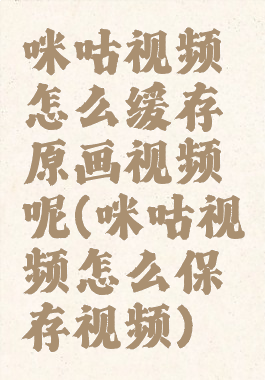 咪咕视频
怎么缓存
原画视频
呢(咪咕视
频怎么保
存视频)